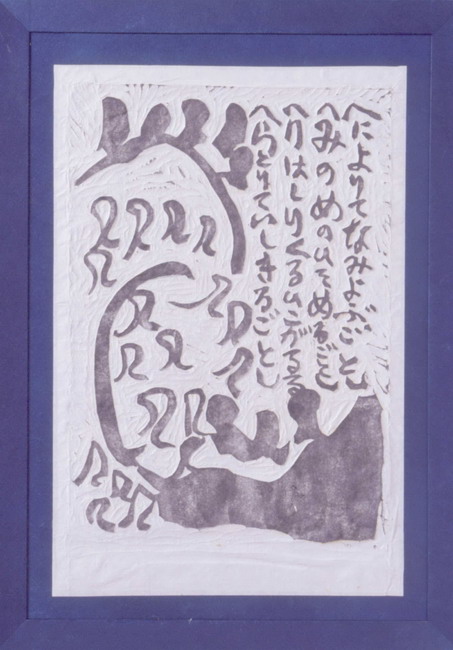 へによりてなみよぶごとし
へみのめのひそめるごとし
へりはしりくる
へらとりていしきるごとし